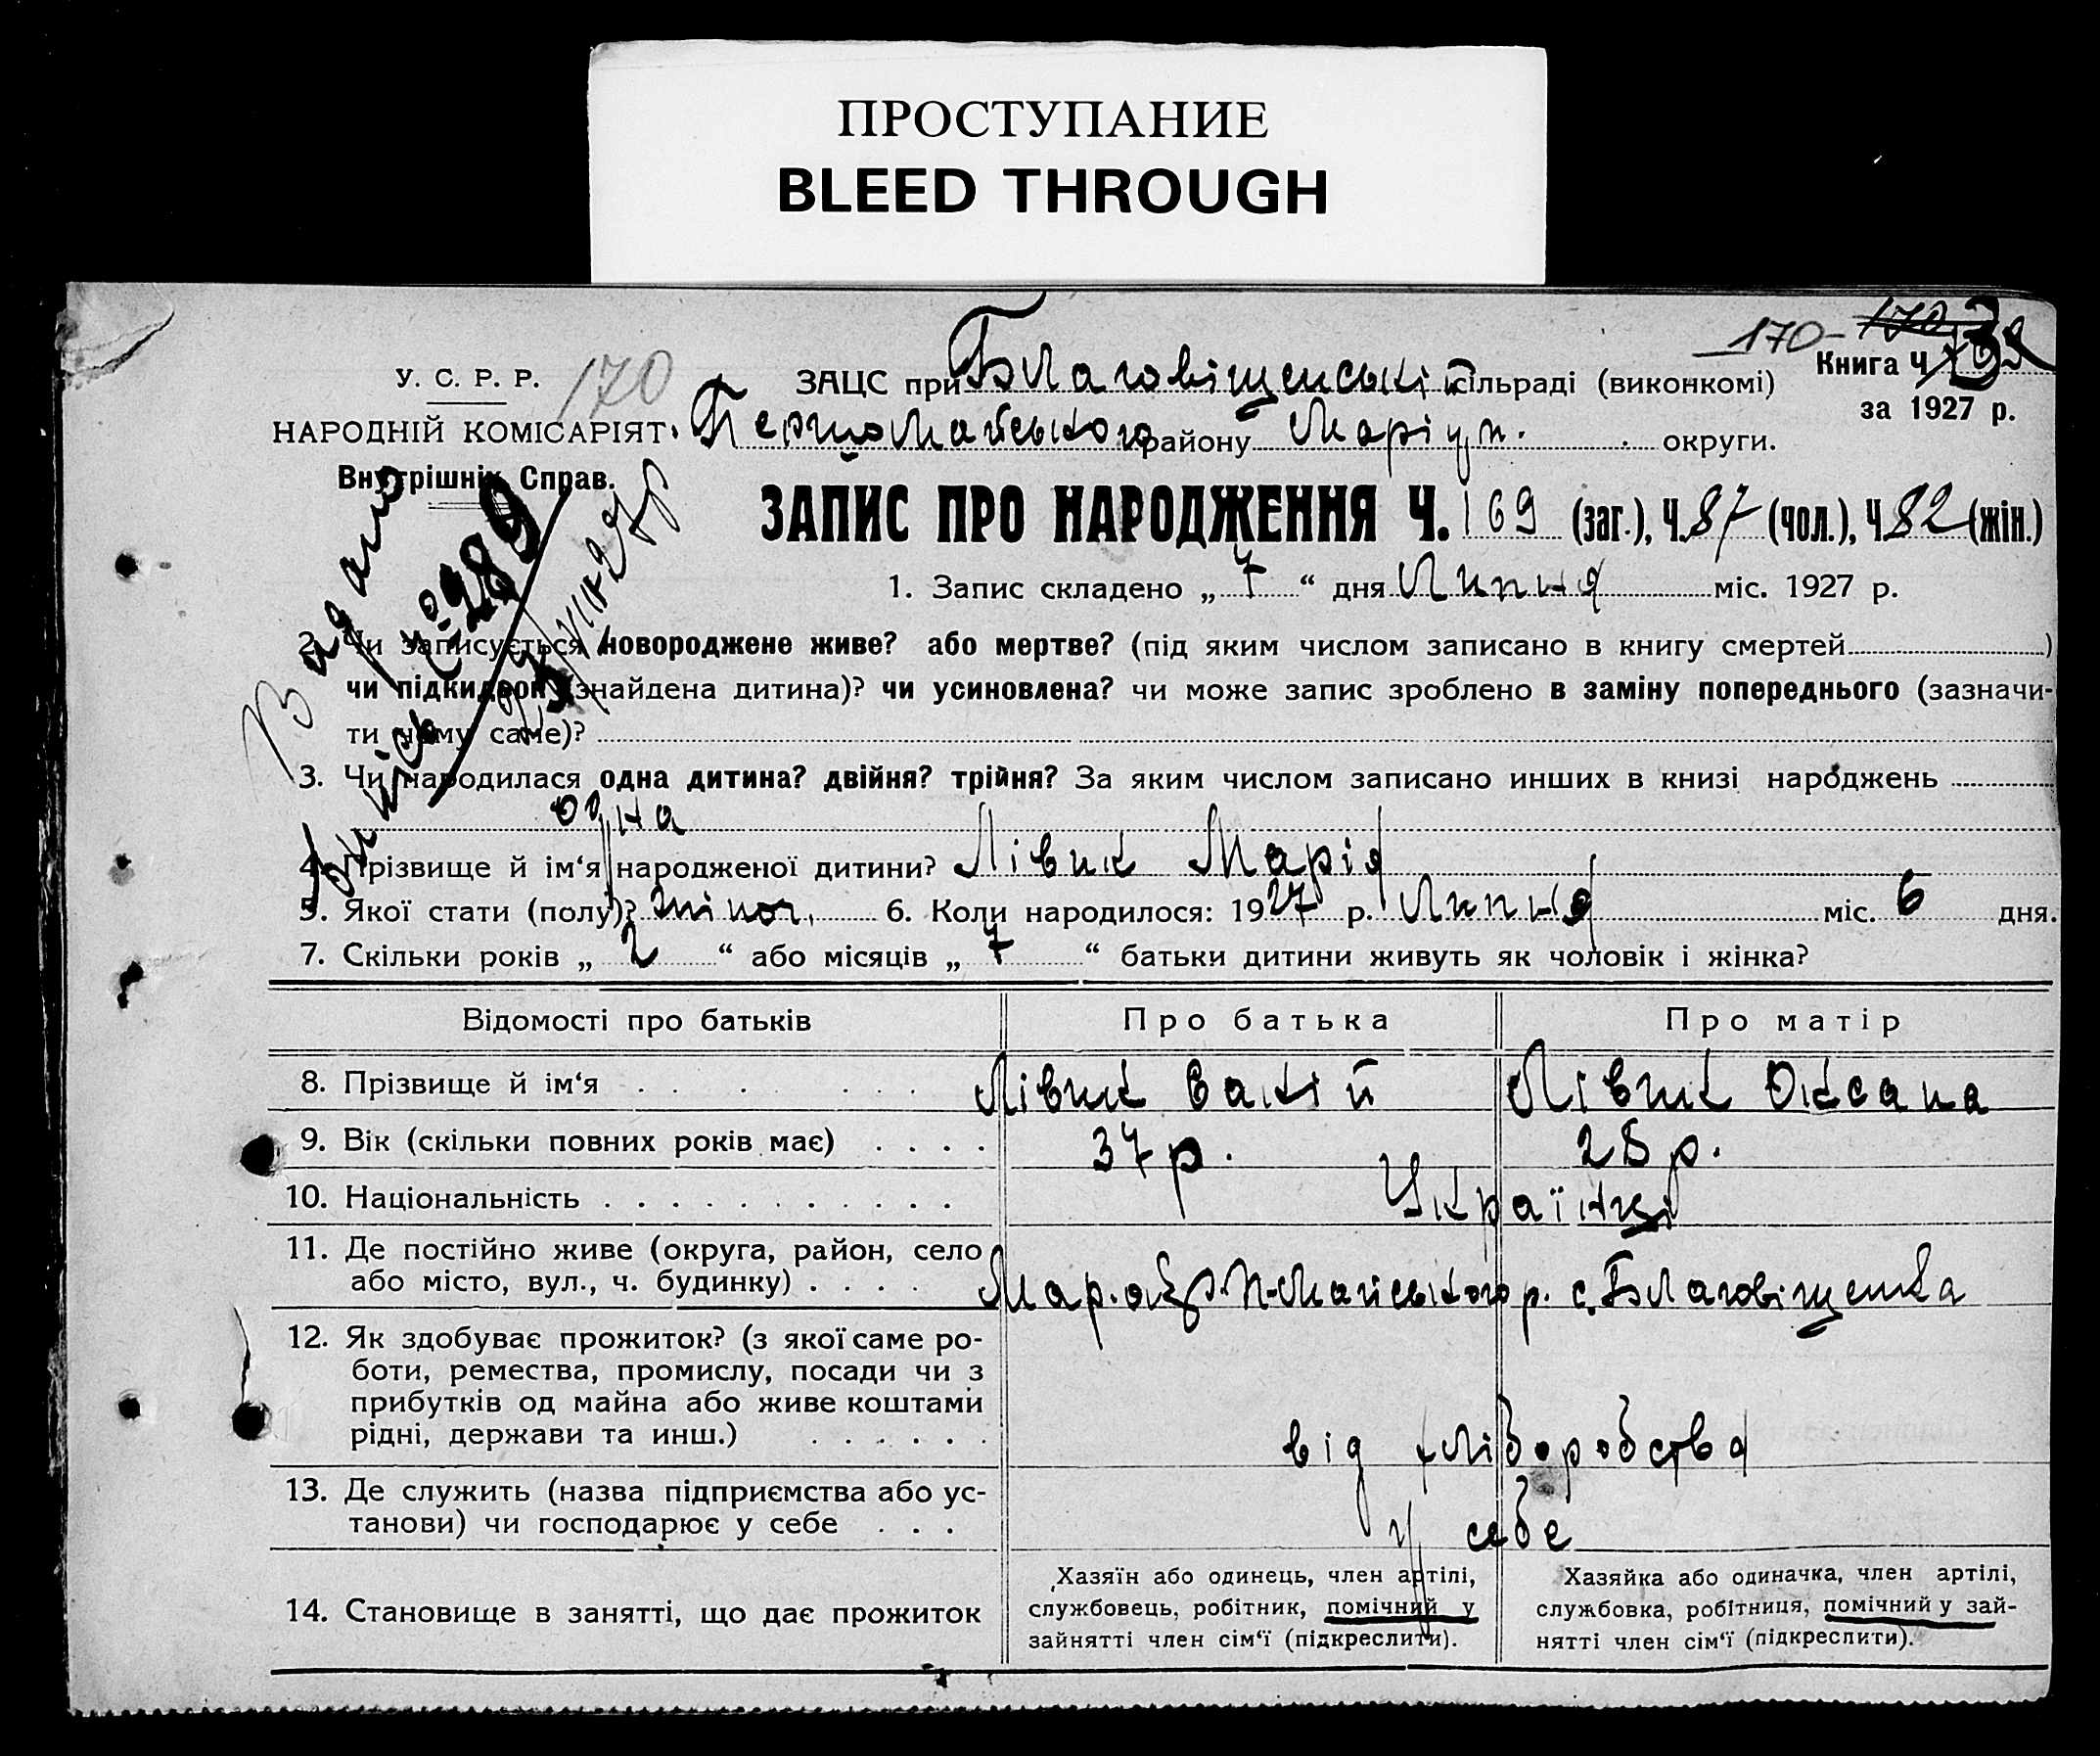 ПРОСТУПАНИЕ
BLEED THROUGH
170- 170
У. С. Р. Р. 170
ЗАЦС при Благовіщенській сільраді (виконкомі) Книга Ч
за 1927 р.
НАРОДНІЙ КОМІСАРІЯТ Першомайського району Маріуп. округи.
Внутрішніх Справ.
Видано
№ 289
ЗАПИС ПРО НАРОДЖЕННЯ Ч. 169 (заг.), Ч. 87 (чол.), Ч 82 (жін.)
1. Запис складено „ 7 “ дня Липня міс. 1927 р.
2. Чи записується новороджене живе? або мертве? (під яким числом записано в книгу смертей )
чи підкидьок (знайдена дитина)? чи усиновлена? чи може запис зроблено в заміну попереднього (зазначи-
ти чому саме)?
3. Чи народилася одна дитина? двійня? трійня? За яким числом записано инших в книзі народжень
одна
4. Прізвище й ім‘я народженої дитини? Лівик Марія
5. Якої стати (полу)? жіноч. 6. Коли народилося: 1927 р. Липня міс. 6 дня.
7. Скільки років „ 2 “ або місяців „ 7 “ батьки дитини живуть як чоловік і жінка?
Відомості про батьків Про батька Про матір
8. Прізвище й ім‘я Лівик Лівик Оксана
9. Вік (скільки повних років має) 37 р. 28 р.
10. Національність Українці
11. Де постійно живе (округа, район, село
або місто, вул., ч. будинку) Мар. окр. П-Майського р. с. Благовіщенка
12. Як здобуває прожиток? (з якої саме ро-
боти, ремества, промислу, посади чи з
прибутків од майна або живе коштами
рідні, держави та инш.) від хліборобства
13. Де служить (назва підприємства або ус-
танови) чи господарює у себе у себе
14. Становище в занятті, що дає прожиток
Хазяїн або одинець, член артілі,
службовець, робітник, помічний у
зайнятті член сім‘ї (підкреслити).
Хазяйка або одиначка, член артілі,
службовка, робітниця, помічний у зай-
нятті член сім‘ї (підкреслити).